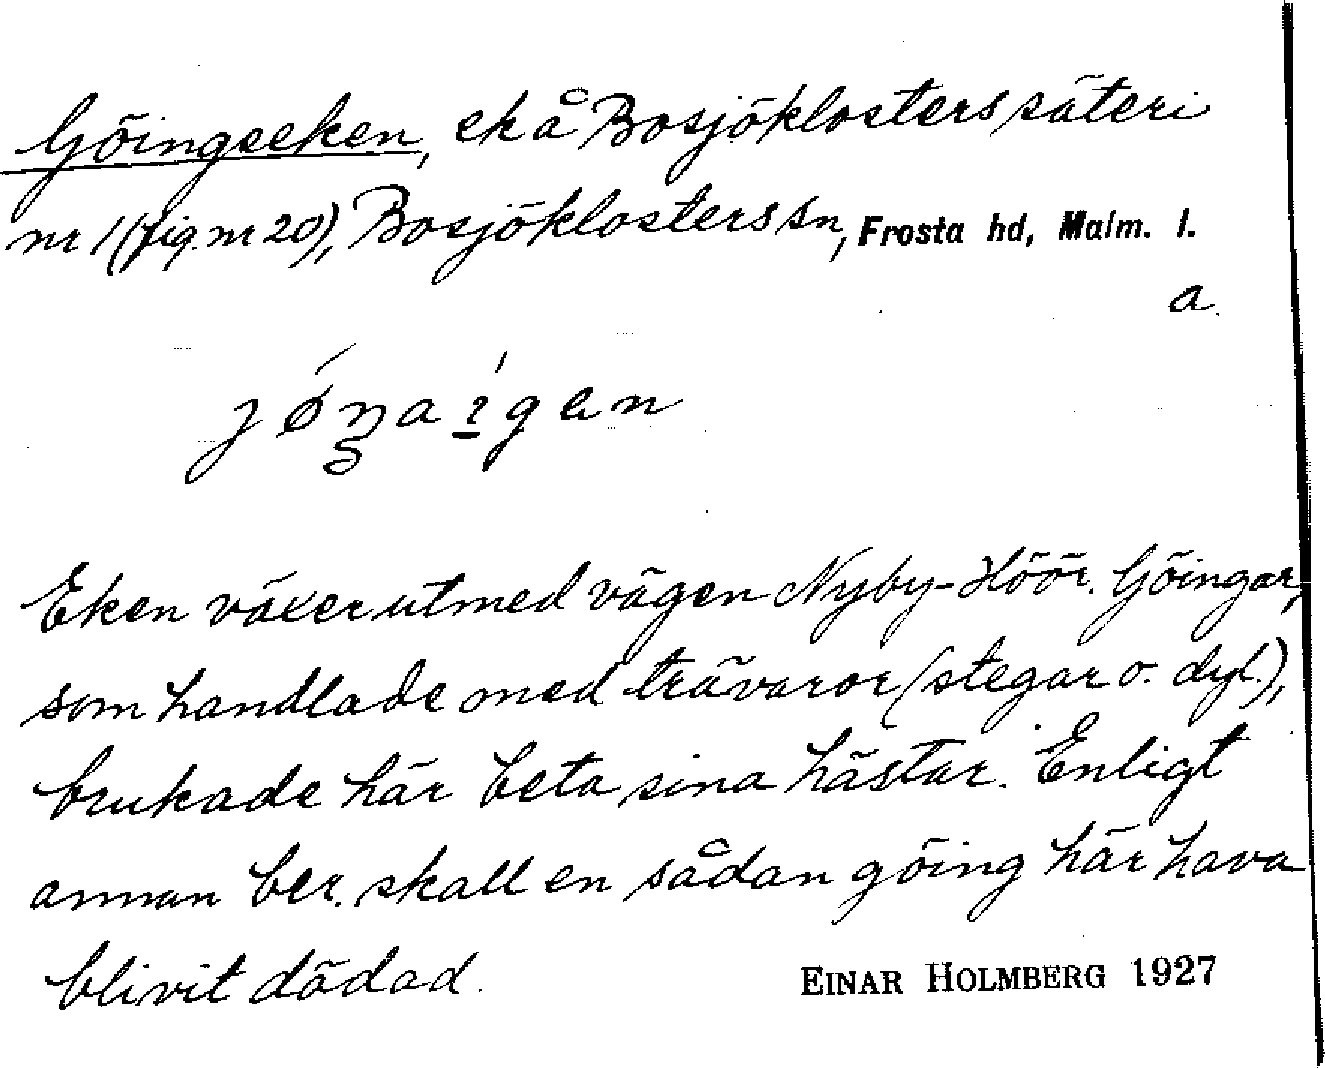 Göingeeken, ek å Bosjöklosters säteri
nr 1 (fig. nr 20), Bosjöklosters sn, Frosta hd, Malm. l.
a.
Eken växer utmed vägen Nyby-Höör. Göingar,
som handlade med trävaror (stegar o. dyl.),
brukade här beta sina hästar. Enligt
annan ber. skall en sådan göing här hava
blivit dödad.
EINAR HOLMBERG 1927